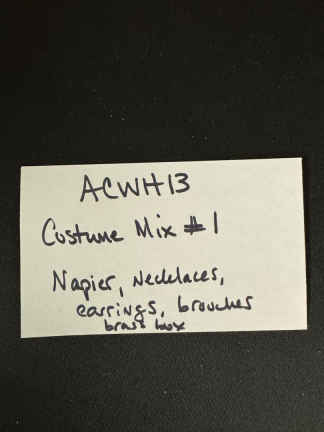 ACWH13
Costume Mix #1
Napier, Necklaces,
earrings, brouches
brass box